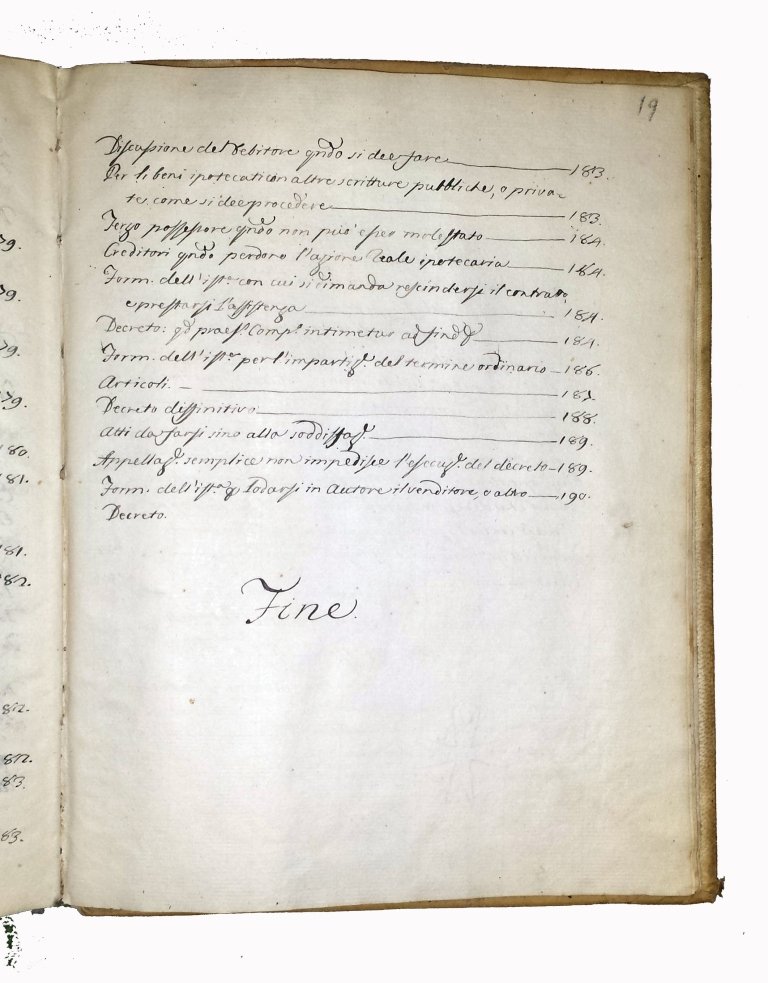 19
Discussione del Debitore qndo si dee fare 183.
Per li beni ipotecati con altre scritture pubbliche, o priva-
te come si dee procedere 183.
Terzo possessore qndo non può esser molestato 184.
Creditori qndo perdono l'azione Reale ipotecaria 184.
Form. dell'ist.a con cui si dimanda rescindersi il contratto,
e prestarsi l'assistenza 184.
Decreto: qd praes. Comp. intimetur ad 184.
Form. dell'ist.a per l'impartiz. del termine ordinario 186.
Articoli. 187.
Decreto diffinitivo 188.
Atti da farsi sino alla soddisfaz. 189.
Appellaz. semplice non impedisce l'esecuz. del decreto 189.
Form. dell'ist.a Lodarsi in Autore il venditore, o altro 190.
Decreto.
Fine.
79.
79.
79.
79.
180.
181.
181.
182.
82.
82.
83.
83.